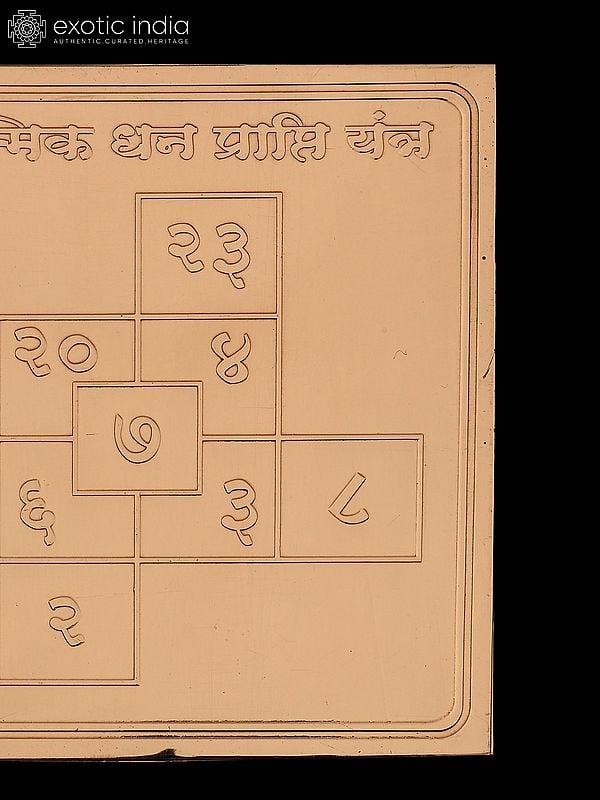 exotic india
AUTHENTIC.CURATED.HERITAGE
धन प्राप्ति यंत्र
२३
२० ४
७
६ ३ ८
२